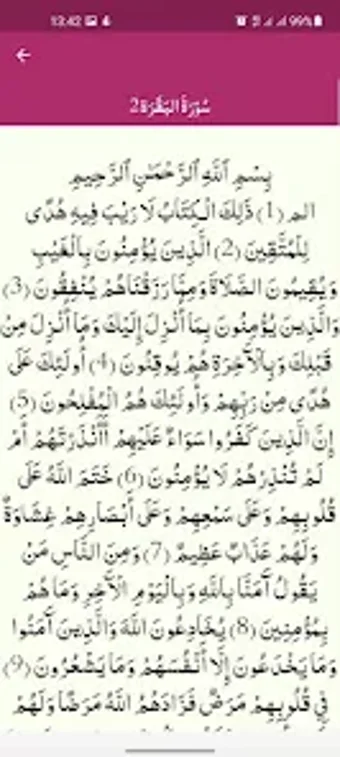 13:42 99%
سُورَةُ البَقَرَة 2
بِسْمِ ٱللَّهِ ٱلرَّحْمَٰنِ ٱلرَّحِيمِ
الم (1) ذَلِكَ الْكِتَابُ لَا رَيْبَ فِيهِ هُدًى
لِلْمُتَّقِينَ (2) الَّذِينَ يُؤْمِنُونَ بِالْغَيْبِ
وَيُقِيمُونَ الصَّلَاةَ وَمِمَّا رَزَقْنَاهُمْ يُنْفِقُونَ (3)
وَالَّذِينَ يُؤْمِنُونَ بِمَا أُنْزِلَ إِلَيْكَ وَمَا أُنْزِلَ مِنْ
قَبْلِكَ وَبِالْآخِرَةِ هُمْ يُوقِنُونَ (4) أُولَئِكَ عَلَى
هُدًى مِنْ رَبِّهِمْ وَأُولَئِكَ هُمُ الْمُفْلِحُونَ (5)
إِنَّ الَّذِينَ كَفَرُوا سَوَاءٌ عَلَيْهِمْ أَأَنْذَرْتَهُمْ أَمْ
لَمْ تُنْذِرْهُمْ لَا يُؤْمِنُونَ (6) خَتَمَ اللَّهُ عَلَى
قُلُوبِهِمْ وَعَلَى سَمْعِهِمْ وَعَلَى أَبْصَارِهِمْ غِشَاوَةٌ
وَلَهُمْ عَذَابٌ عَظِيمٌ (7) وَمِنَ النَّاسِ مَنْ
يَقُولُ آمَنَّا بِاللَّهِ وَبِالْيَوْمِ الْآخِرِ وَمَا هُمْ
بِمُؤْمِنِينَ (8) يُخَادِعُونَ اللَّهَ وَالَّذِينَ آمَنُوا
وَمَا يَخْدَعُونَ إِلَّا أَنْفُسَهُمْ وَمَا يَشْعُرُونَ (9)
فِي قُلُوبِهِمْ مَرَضٌ فَزَادَهُمُ اللَّهُ مَرَضًا وَلَهُمْ